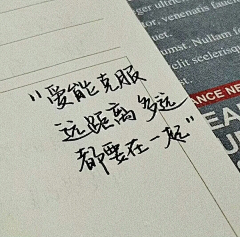 "爱能克服
远距离多远
都要在一起"
ger ultrice
or, venenatis
fauce
umst. Nullam f
elit scelerisq
ANCE NE